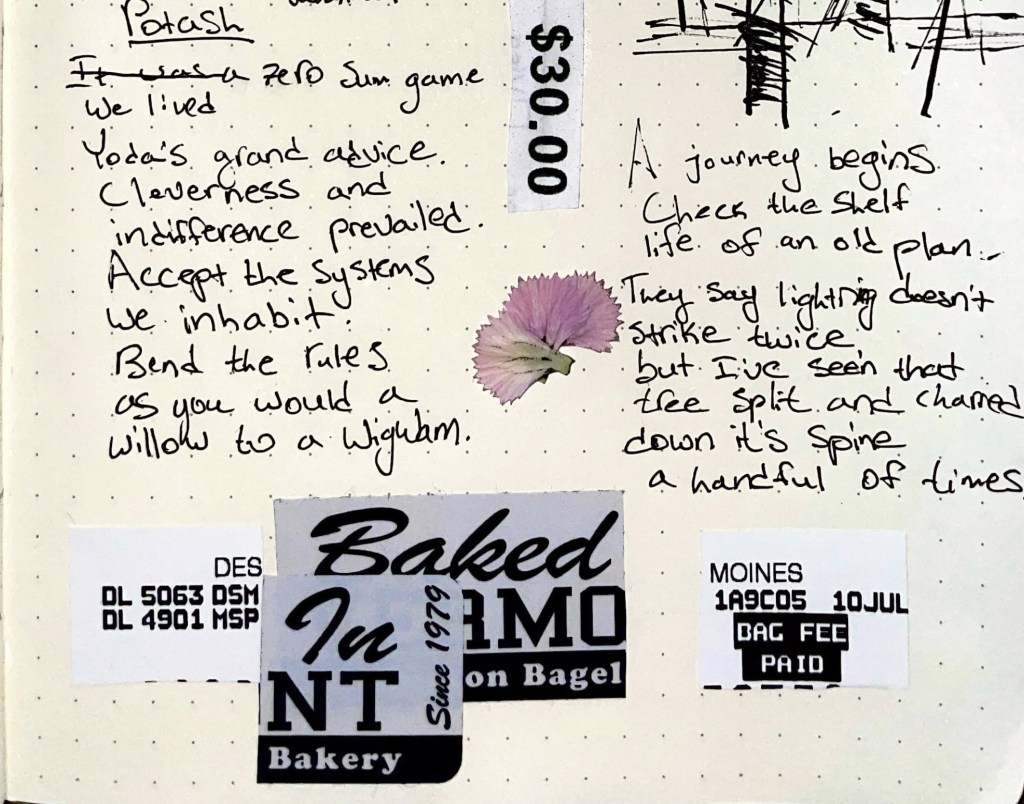 Potash
It was a zero sum game
we lived
Yoda's grand advice.
Cleverness and
indifference prevailed.
Accept the systems
we inhabit.
Bend the rules
as you would a
willow to a Wigwam.
$30.00
A journey begins
Check the shelf
life of an old plan..
They say lightning doesn't
strike twice
but I've seen that
tree split and charred
down it's spine
a handful of times
DES
DL 5063 DSM
DL 4901 MSP
Baked
RMO
on Bagel
In
NT
Since 1979
Bakery
MOINES
1A9C05 10JUL
BAG FEE
PAID